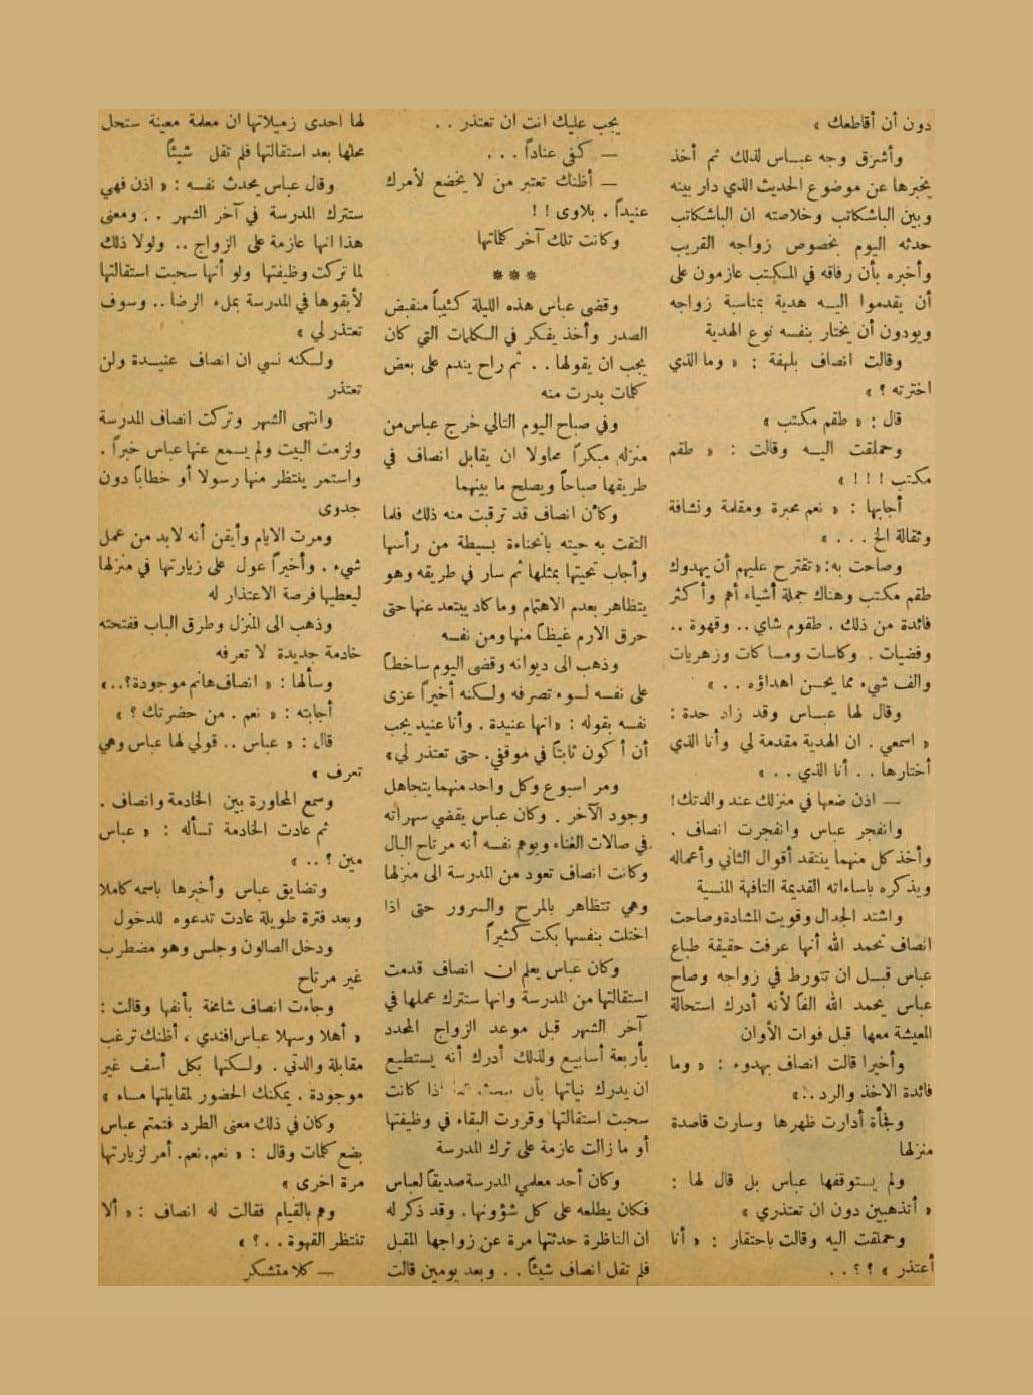 دون أن أقاطعك »
وأشرق وجه عبـاس لذلك ثم أخذ
يخبرها عن موضوع الحديث الذي دار بينه
وبين الباشكاتب وخلاصته ان الباشكاتب
حدثه اليوم بخصوص زواجه القريب
وأخبره بأن رفاقه في المكتب عازمون على
أن يقدموا اليـه هدية بمناسبة زواجه
ويودون أن يختار بنفسه نوع الهدية
وقالت انصاف بلهفة : « وما الذي
اخترته ؟ »
قال : « طقم مكتب »
وحملقت اليـه وقالت : « طقم
مكتب ! ! ! »
أجابها : « نعم محبرة ومقلمة ونشافة
وثقالة الخ . . . »
وصاحت به: « تقترح عليهم أن يهدوك
طقم مكتب وهناك جملة أشياء أهم وأكثر
فائدة من ذلك . طقوم شاي .. وقهوة ..
وفضيات . وكاسات ومـا كات وزهريات
والف شيء مما يحسن اهداؤه . . »
وقال لها عبـاس وقد زاد حدة :
« اسمعي . ان الهدية مقدمة لي وأنا الذي
أختارها . . أنا الذي . . »
— اذن ضعها في منزلك عند والدتك!
وانفجر عباس وانفجرت انصاف .
وأخذ كل منهما ينتقد أقوال الثاني وأعماله
ويذكره باساءاته القديمة التافهة المنسية
واشتد الجدال وقويت المشادة وصاحت
انصاف تحمد الله أنها عرفت حقيقة طباع
عباس قبـل ان تتورط في زواجه وصاح
عباس يحمد الله الفا لأنه أدرك استحالة
المعيشة معها قبل فوات الأوان
وأخيرا قالت انصاف بهدوء : « وما
فائدة الاخذ والرد .. »
وفجأة أدارت ظهرها وسارت قاصدة
منزلها
ولم يستوقفها عباس بل قال لها :
« أتذهبين دون ان تعتذري »
وحملقت اليه وقالت باحتقار : « أنا
أعتذر » ؟ ؟ . .
يجب عليك انت ان تعتذر . .
— كفى عناداً . . .
— أظنك تعتبر من لا يخضع لأمرك
عنيداً . بلاوى ! !
وكانت تلك آخر كلماتها
***
وقضى عباس هذه الليلة كئيباً منقبض
الصدر وأخذ يفكر في الكلمات التي كان
يجب ان يقولها . . ثم راح يندم على بعض
كلمات بدرت منه
وفي صباح اليوم التالي خرج عباس من
منزله مبكراً محاولا ان يقابل انصاف في
طريقها صباحاً ويصلح ما بينهما
وكأن انصاف قد ترقبت منه ذلك فلما
التقت به حيته بانحناءة بسيطة من رأسها
وأجاب تحيتها بمثلها ثم سار في طريقه وهو
يتظاهر بعدم الاهتمام وما كاد يبتعد عنها حتى
حرق الارم غيظاً منها ومن نفسه
وذهب الى ديوانه وقضى اليوم ساخطاً
على نفسه لسوء تصرفه ولكنه أخيراً عزى
نفسه بقوله : « انها عنيدة . وأنا عنيد يجب
أن أكون ثابتاً في موقفي. حتى تعتذر لي »
ومر اسبوع وكل واحد منهما يتجاهل
وجود الآخر . وكان عباس يقضي سهراته
في صالات الغناء ويوهم نفسه أنه مرتاح البال
وكانت انصاف تعود من المدرسة الى منزلها
وهي تتظاهر بالمرح والسرور حتى اذا
اختلت بنفسها بكت كثيراً
وكان عباس يعلم ان انصاف قدمت
استقالتها من المدرسة وانها ستترك عملها في
آخر الشهر قبل موعد الزواج المحدد
بأربعة أسابيع ولذلك أدرك أنه يستطيع
ان يدرك نياتها بأن اذا كانت
سحبت استقالتها وقررت البقاء في وظيفتها
أو ما زالت عازمة على ترك المدرسة
وكان أحد معلمي المدرسة صديقاً لعباس
فكان يطلعه على كل شؤونها . وقد ذكر له
ان الناظرة حدثتها مرة عن زواجها المقبل
فلم تقل انصاف شيئاً . . وبعد يومين قالت
لها احدى زميلاتها ان معلمة معينة ستحل
محلها بعد استقالتها فلم تقل شيئاً
وقال عباس يحدث نفسه : « اذن فهي
ستترك المدرسة في آخر الشهر . . ومعنى
هذا انها عازمة على الزواج .. ولولا ذلك
لما تركت وظيفتها ولو أنها سحبت استقالتها
لأبقوها في المدرسة بملء الرضا .. وسوف
تعتذر لي »
ولكنه نسي ان انصاف عنيـدة ولن
تعتذر
وانتهى الشهر وتركت انصاف المدرسة
ولزمت البيت ولم يسمع عنها عباس خبراً .
واستمر ينتظر منها رسولا أو خطاباً دون
جدوى
ومرت الايام وأيقن أنه لابد من عمل
شيء . وأخيراً عول على زيارتها في منزلها
ليعطيها فرصة الاعتذار له
وذهب الى المنزل وطرق الباب ففتحته
خادمة جديدة لا تعرفه
وسألها : « انصاف هانم موجودة؟.. »
أجابته : « نعم . من حضرتك ؟ »
قال : « عباس .. قولي لها عباس وهي
تعرف »
وسمع المحاورة بين الخادمة وانصاف .
ثم عادت الخادمة تسأله : « عباس
مين ؟ .. »
وتضايق عباس وأخبرها باسمه كاملا
وبعد فترة طويلة عادت تدعوه للدخول
ودخل الصالون وجلس وهو مضطرب
غير مرتاح
وجاءت انصاف شامخة بأنفها وقالت :
« أهلا وسهلا عباس افندي ، أظنك ترغب
مقابلة والدتي . ولكنها بكل أسف غير
موجودة . يمكنك الحضور لمقابلتها مساء »
وكان في ذلك معنى الطرد فتمتم عباس
بضع كلمات وقال : « نعم.نعم. أمر لزيارتها
مرة اخرى »
وهم بالقيام فقالت له انصاف : « ألا
تنتظر القهوة . . ؟ »
— كلا متشكر